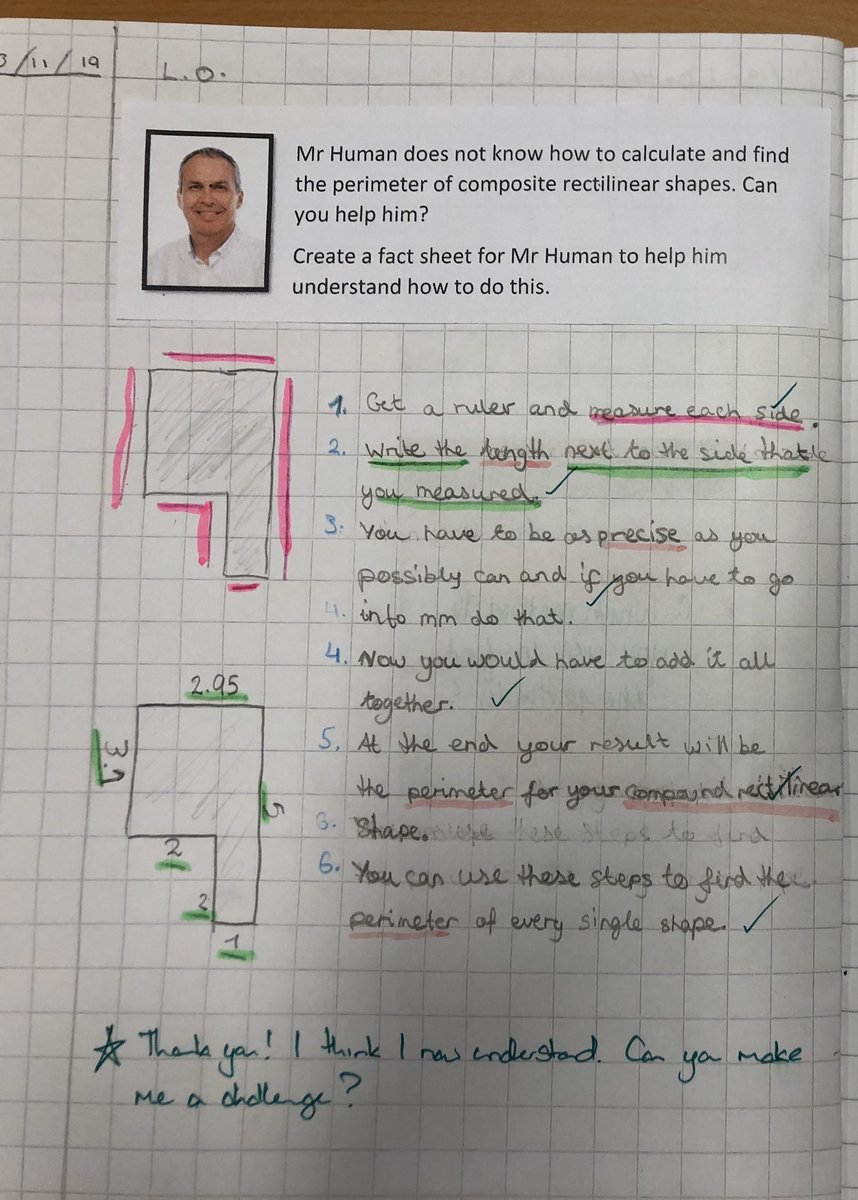 3/11/19
L.O.
Mr Human does not know how to calculate and find
the perimeter of composite rectilinear shapes. Can
you help him?
Create a fact sheet for Mr Human to help him
understand how to do this.
1. Get a ruler and measure each side.
2. Write the length next to the side that
you measured.
3. You have to be as precise as you
possibly can and if you have to go
4. into mm do that.
4. Now you would have to add it all
together.
5. At the end your result will be
the perimeter for your compound rectilinear
6. Shape. use these steps to find
6. You can use these steps to find the
perimeter of every single shape.
2.95
3.1
5
2
2
1
Thank you! I think I now understand. Can you make
me a challenge?